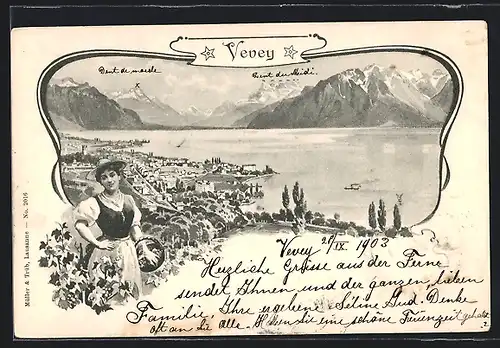 Vevey
Dent de morcle
Dent du Midi.
Müller & Trüb, Lausanne — No. 2016
Vevey 20/IX 1903
Herzliche Grüsse aus der Ferne
sendet Ihnen und der ganzen lieben
Familie, Ihre ergebene Denke
oft an Sie alle. Sie eine schöne Ferienzeit gehabt.